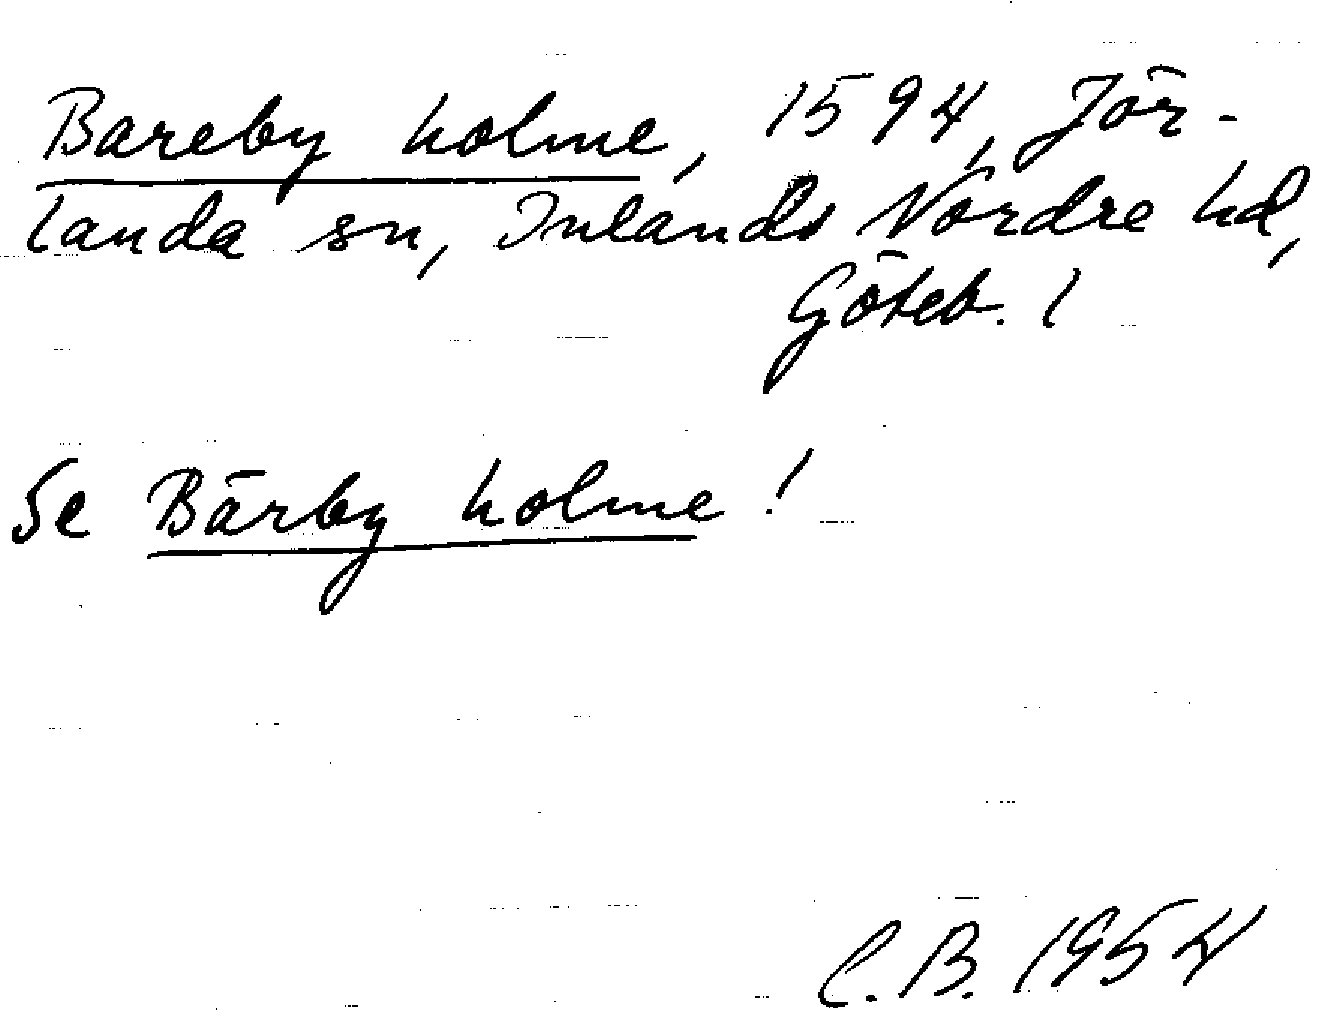 Bareby holme, 1594, Jör-
landa sn, Inlands Nordre hd,
Göteb. l
Se Bärby holme!
C.B. 1954